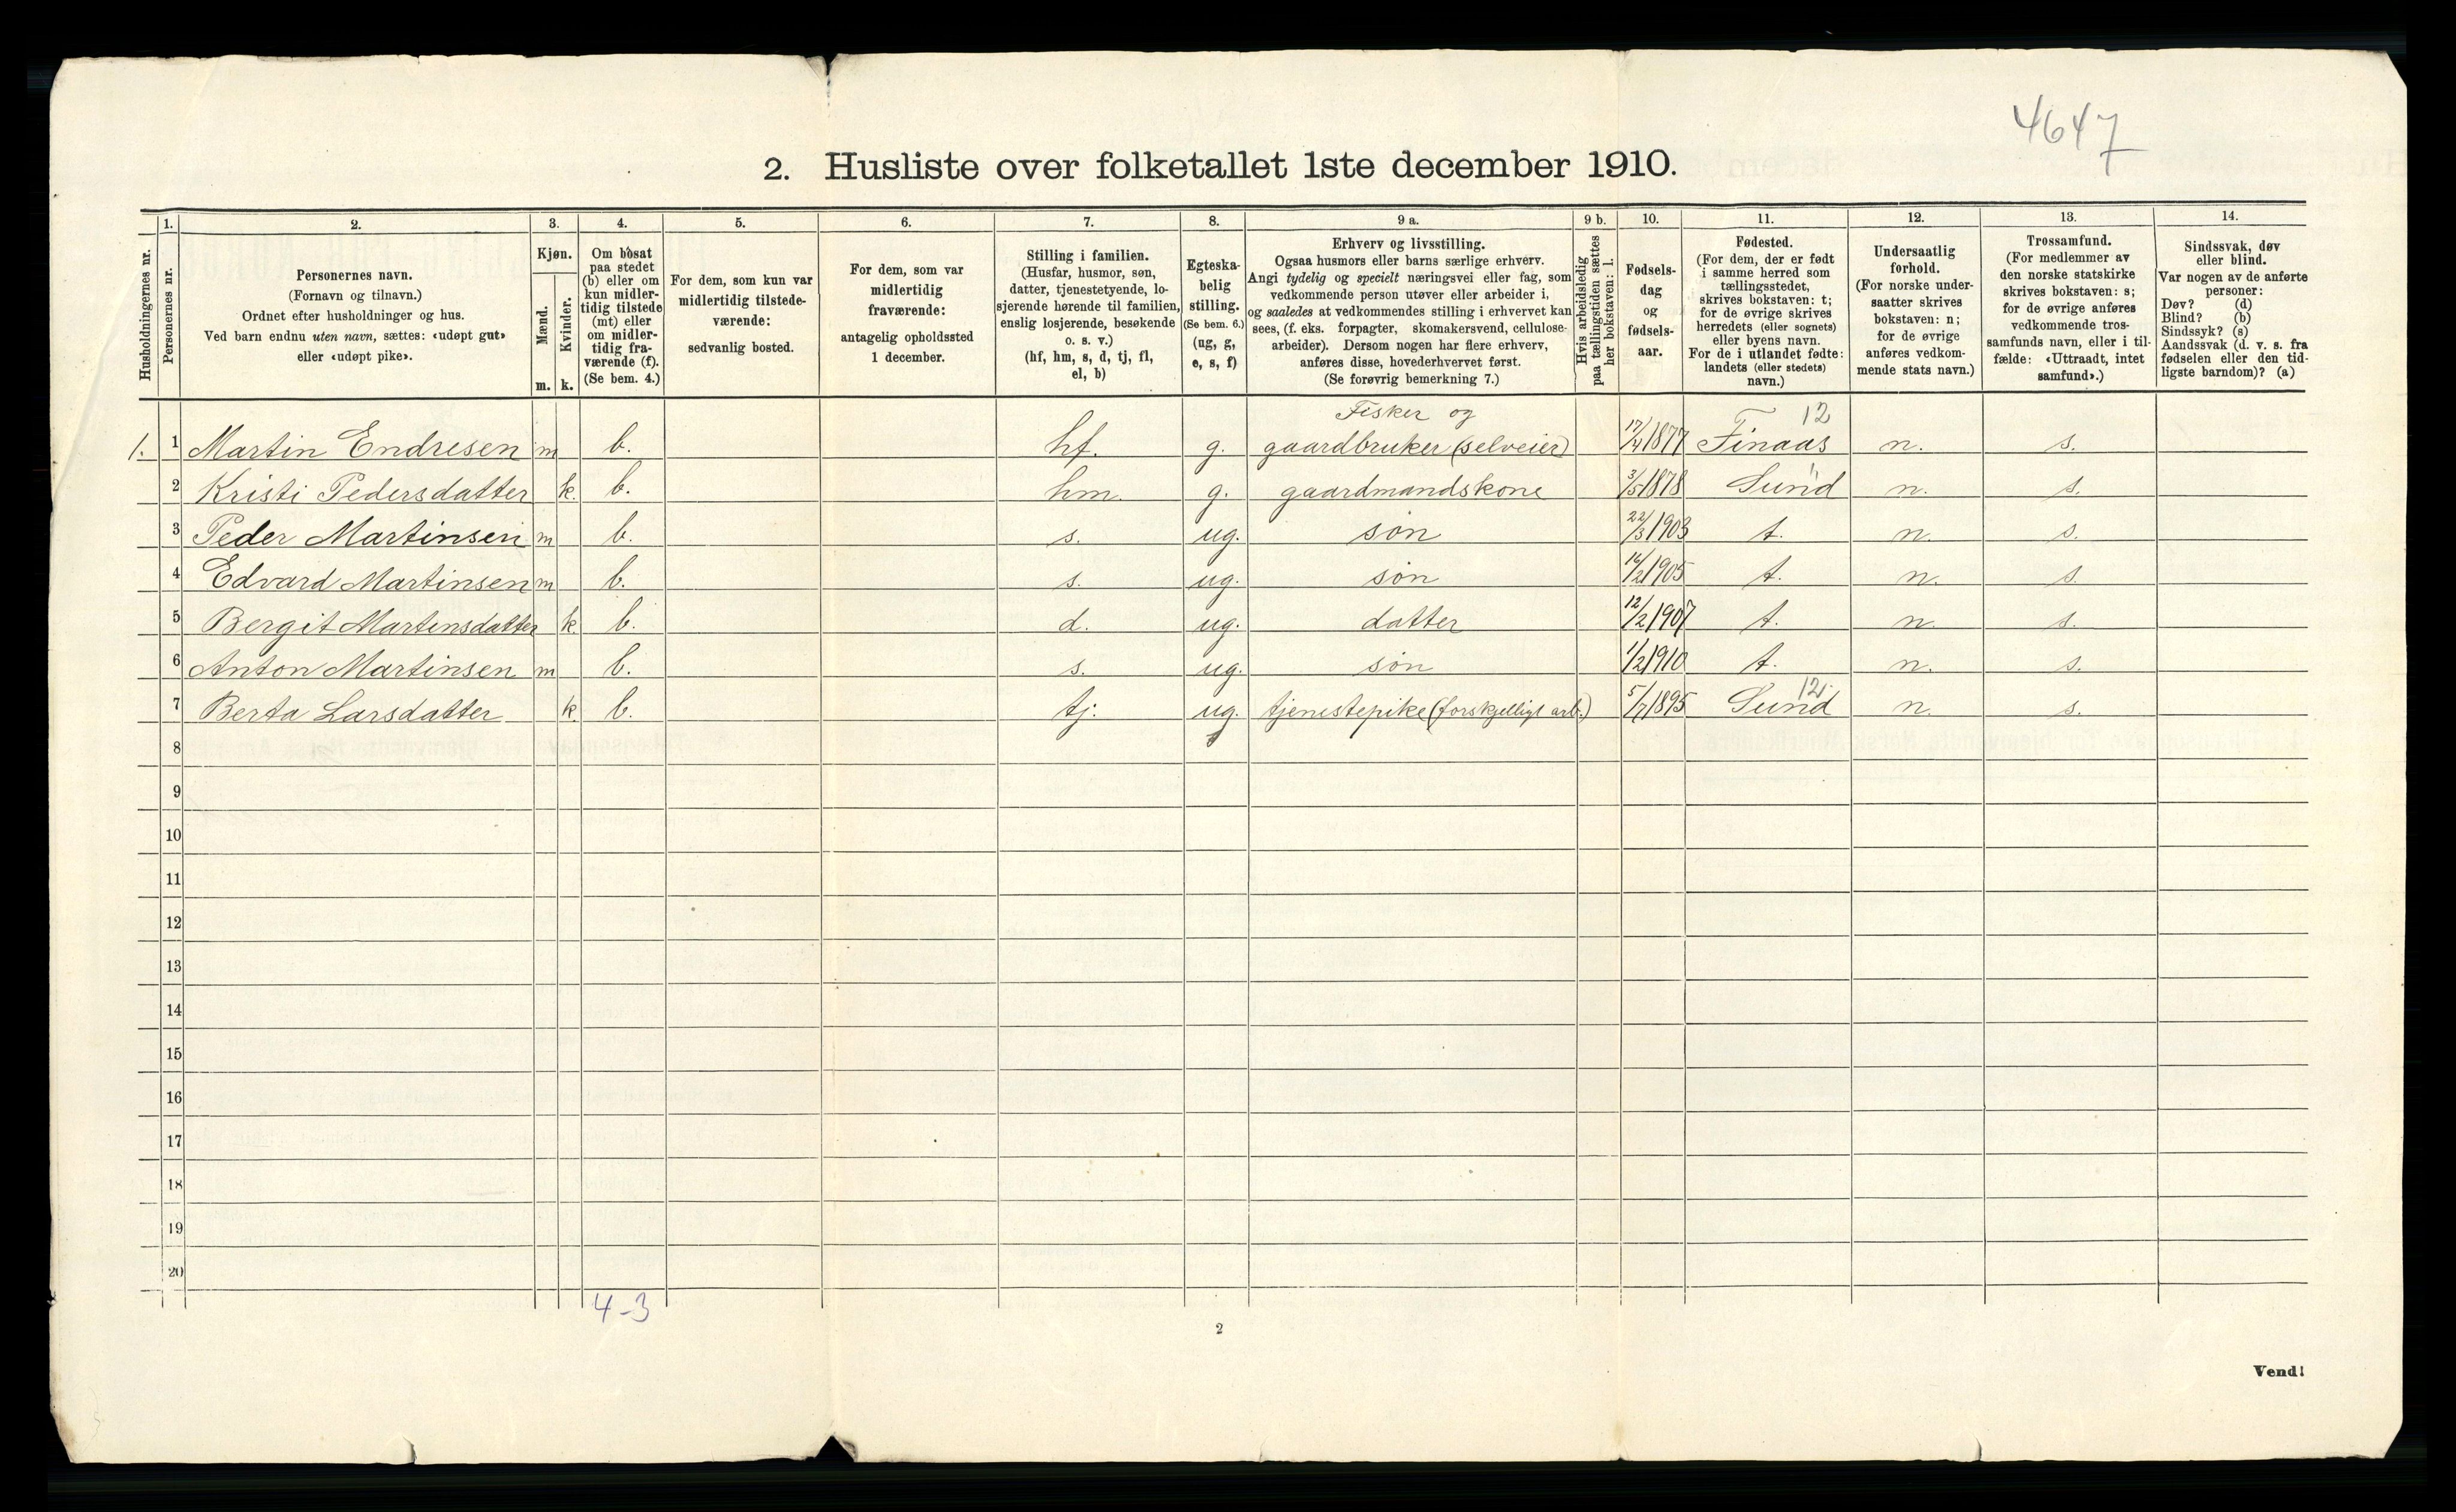 4647
2. Husliste over folketallet 1ste december 1910.
Husholdningernes nr.
1.
Personernes nr.
2.
Personernes navn.
(Fornavn og tilnavn.)
Ordnet efter husholdninger og hus.
Ved barn endnu uten navn, sættes: «udøpt gut»
eller «udøpt pike».
3.
Kjøn.
Mænd.
Kvinder.
m. k.
4.
Om bosat
paa stedet
(b) eller om
kun midler-
tidig tilstede
(mt) eller
om midler-
tidig fra-
værende (f).
(Se bem. 4.)
5.
For dem, som kun var
midlertidig tilstede-
værende:
sedvanlig bosted.
6.
For dem, som var
midlertidig
fraværende:
antagelig opholdssted
1 december.
7.
Stilling i familien.
(Husfar, husmor, søn,
datter, tjenestetyende, lo-
sjerende hørende til familien,
enslig losjerende, besøkende
o. s. v.)
(hf, hm, s, d, tj, fl,
el, b)
8.
Egteska-
belig
stilling.
(Se bem. 6.)
(ug, g,
e, s, f)
9 a.
Erhverv og livsstilling.
Ogsaa husmors eller barns særlige erhverv.
Angi tydelig og specielt næringsvei eller fag, som
vedkommende person utøver eller arbeider i,
og saaledes at vedkommendes stilling i erhvervet kan
sees, (f. eks. forpagter, skomakersvend, cellulose-
arbeider). Dersom nogen har flere erhverv,
anføres disse, hovederhvervet først.
(Se forøvrig bemerkning 7.)
9 b.
Hvis arbeidsledig
paa tællingstiden sættes
her bokstaven: l.
10.
Fødsels-
dag
og
fødsels-
aar.
11.
Fødested.
(For dem, der er født
i samme herred som
tællingsstedet,
skrives bokstaven: t;
for de øvrige skrives
herredets (eller sognets)
eller byens navn.
For de i utlandet fødte:
landets (eller stedets)
navn.)
12.
Undersaatlig
forhold.
(For norske under-
saatter skrives
bokstaven: n;
for de øvrige
anføres vedkom-
mende stats navn.)
13.
Trossamfund.
(For medlemmer av
den norske statskirke
skrives bokstaven: s;
for de øvrige anføres
vedkommende tros-
samfunds navn, eller i til-
fælde: «Uttraadt, intet
samfund».)
14.
Sindssvak, døv
eller blind.
Var nogen av de anførte
personer:
Døv? (d)
Blind? (b)
Sindssyk? (s)
Aandssvak (d. v. s. fra
fødselen eller den tid-
ligste barndom)? (a)
Fisker og 12
1. 1 Martin Endresen m b. hf. g. gaardbruker (selveier) 17/4 1877 Finaas n. s.
2 Kristi Pedersdatter k. b. hm. g. gaardmandskone 3/5 1878 Sund n. s.
3 Peder Martinsen m b. s. ug. søn 22/3 1903 t. n. s.
4 Edvard Martinsen m b. s. ug. søn 16/2 1905 t. n. s.
5 Bergit Martinsdatter k. b. d. ug. datter 12/2 1907 t. n. s.
6 Anton Martinsen m b. s. ug. søn 1/2 1910 t. n. s.
12
7 Berta Larsdatter k. b. tj. ug. tjenestepike (forskjelligt arb.) 5/7 1895 Sund n. s.
8
9
10
11
12
13
14
15
16
17
18
19
20
4-3
2
Vend!